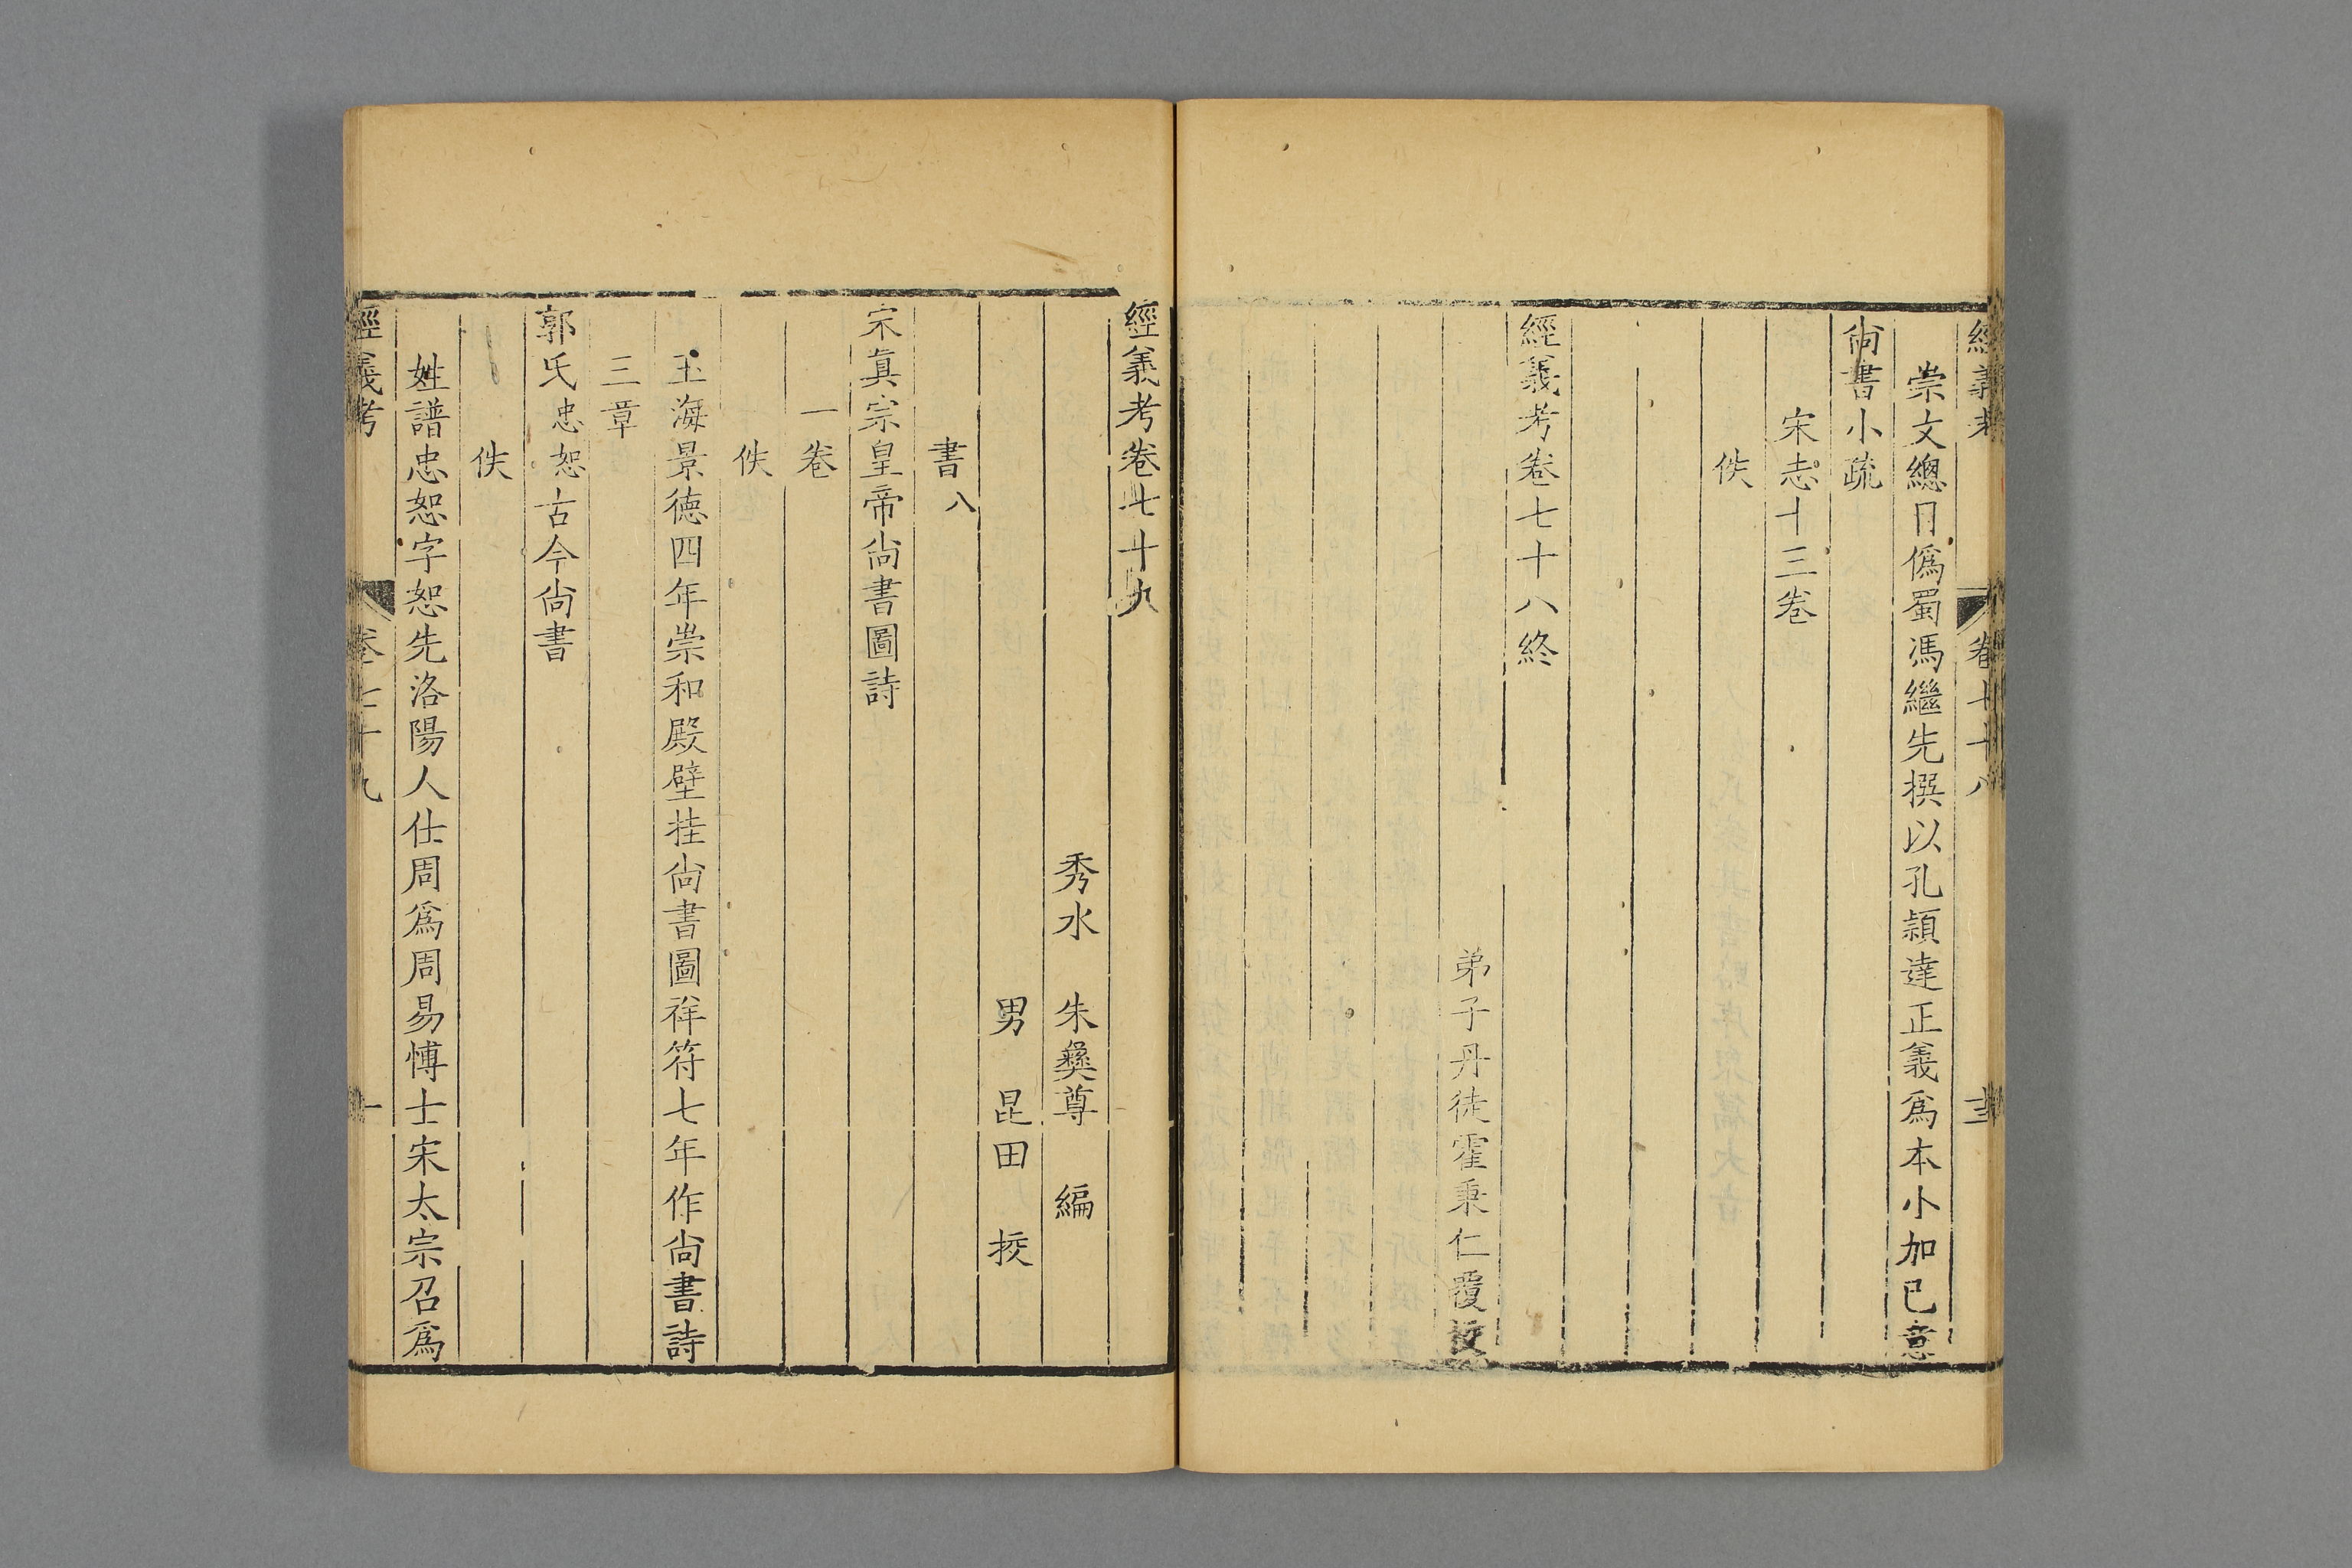 經義考 卷七十八
崇文總目僞蜀馮繼先撰以孔穎達正義爲本小加已意
尙書小疏
宋志十三卷
佚
經義考卷七十八終
弟子丹徒霍秉仁覆挍
經義考卷七十九
秀水 朱彝尊 編
男 昆田 挍
書八
宋眞宗皇帝尙書圖詩
一卷
佚
玉海景徳四年崇和殿壁挂尙書圖祥符七年作尙書詩
三章
郭氏忠恕古今尙書
佚
姓譜忠恕字恕先洛陽人仕周爲周易愽士宋太宗召爲
經義考 卷七十九 一